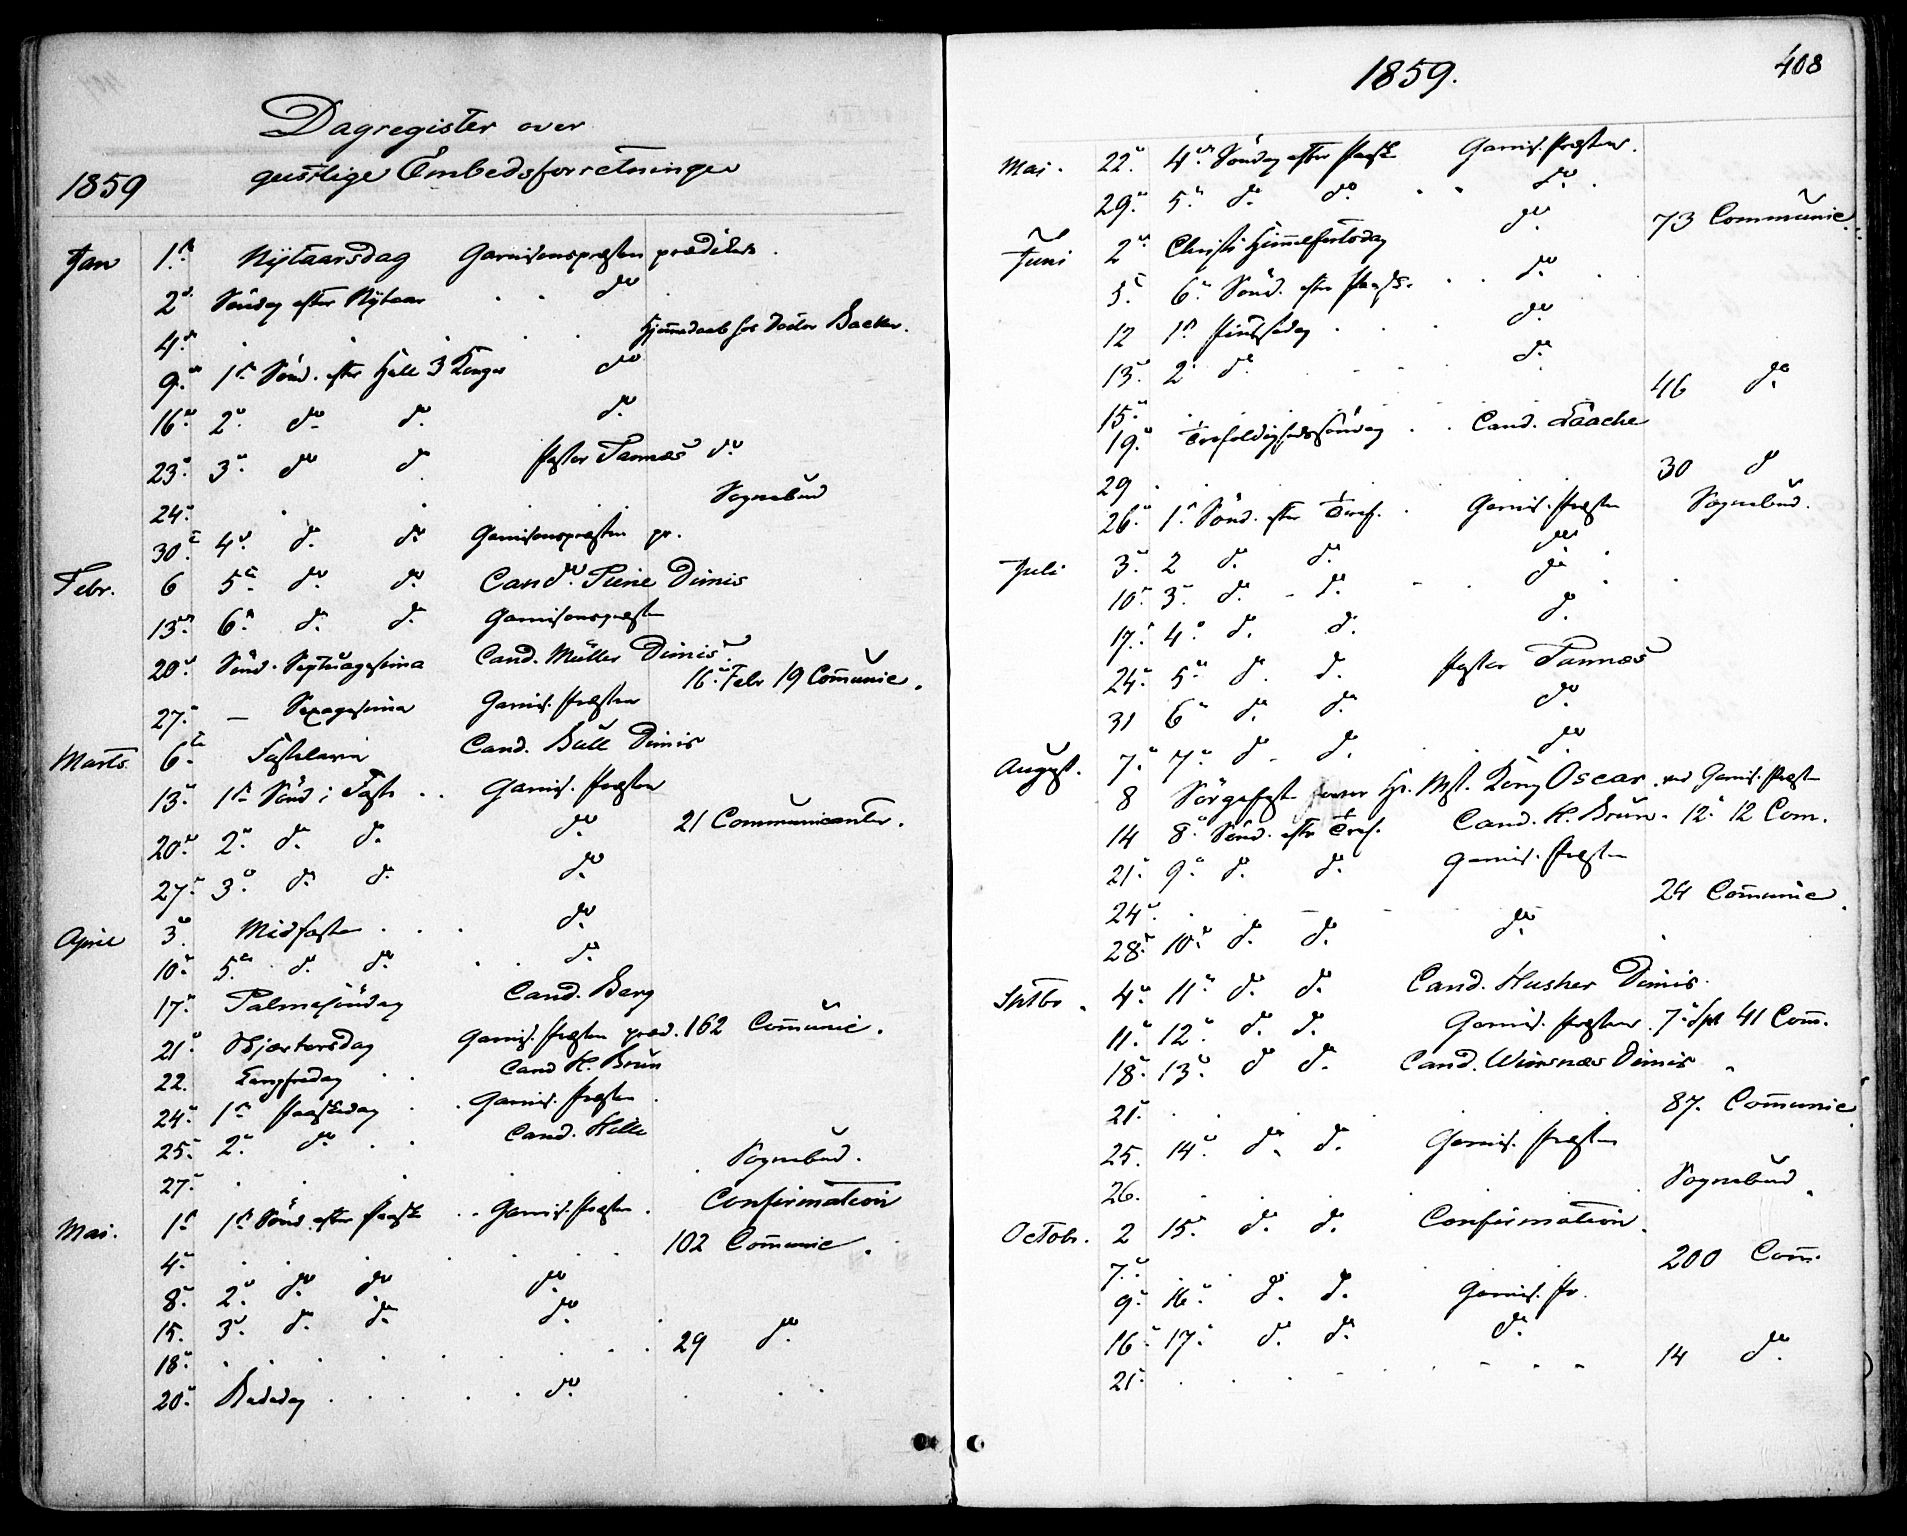 Dagregister over
1859 geistlige Embedsforretninger
Jan 1ste Nytaarsdag Garnisonspræsten prædiker.
2den Söndag efter Nytaar . . do
4de . . . . Hjemmedaab hos Doctor Backer.
9de 1ste Sönd. efter Hell. 3 Konger do
16de 2den do do do
23de 3die do do Pastor Tannæs do
24de . . . . Sognebud
30te 4de do do Garnisonspræsten pr.
Febr. 6 5te do do Cand. Dimis
13de 6te do do Garnisonspræsten
20de Sönd. Septuagesima Cand. Müller Dimis.
16de Febr 19 Com̄unic.
27de — Sexagesima Garnis. Præsten
Marts 6te Fastelavn Cand. Bull Dimis
13de 1ste Sönd i Faste . . Garnis. Præsten
20de 2den do do do 21 Communicanter.
27de 3die do do do
April 3die Midfaste . . . do
10de 5te do do . . do
17de Palmesöndag Cand. Berg
21de Skjærtorsdag Garnis. Præsten præd. 162 Com̄unic.
22. Langfredag . . Cand K. Brun
24de 1ste Paaskedag . . Garnis. Præsten .
25de 2den do . . Cand. Hille
27de . . . . . Sognebud.
Mai. 1ste 1ste Sönd. efter Paaske . . Garnis. Præsten . Confirmation
4de . . . . . 102 Com̄unic.
8de 2den do do do
15. 3die do do do .
18de . . . . . . . . 29 do
20de Bededag . . . . do . . .
1859. 408
Mai. 22de 4de Söndag efter Paaske Garnis. Præsten.
29de 5te do do . . do .
Juni 2den Christi Himmelfartsdag do 73 Communic.
5te 6te Sönd. efter Paaske . . do .
12 1ste Pintsedag . . . do
13de 2den do . . . do
15de . . . 46 do
19de Trefoldighedssöndag . . Cand. Faache
29 . . . . 30 do
26de 1ste Sönd. efter Tref. . Garnis. Præsten Sognebud.
Juli 3die 2 do do do .
10de 3die do do . . do . .
17de 4de do do do
24de 5te do do Pastor Tannæs
31 6te do do do
August. 7de 7de do do do
8 Sörgefest over Hs. Mst. Kong Oscar. ved Garnis. Præsten
14 8de Sönd. efter Tref. Cand. K. Brun. 12te 12 Com.
21de 9de do do Garnis. Præsten
24de . . . . 24 Com̄unic.
28de 10de do do do .
Sptbr. 4de 11te do do Cand. Husher Dimis.
11te 12te do do Garnis. Præsten . 7de Sept 41 Com̄.
18de 13de do do Cand. Wiirsnæs Dimis .
21de . . . . . 87. Com̄unic.
25. 14de do do Garnis. Præsten
26. . . . . . Sognebud .
Octobr. 2 15de do do Confirmation .
7de . . . . 200 Com̄.
9de 16de do do Garnis. Pr.
16de 17de do do do
21de . . . . . . . 14 do